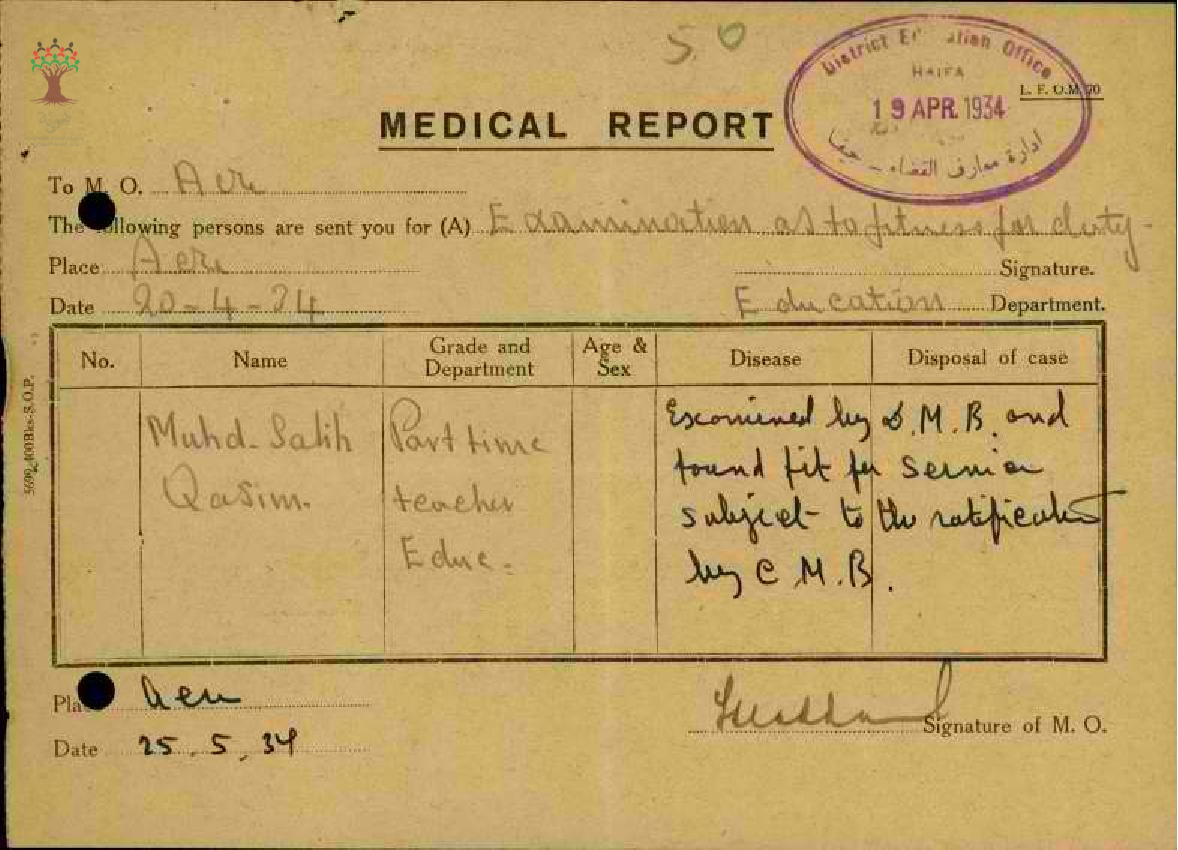 S. O
District Education Office
HAIFA
19 APR. 1934
ادارة معارف القضاء - حيفا
L. F. O.M. 70
MEDICAL REPORT
To M. O. Acre
The following persons are sent you for (A) Examination as to fitness for duty.
Place Acre Signature.
Date 20-4-34 Education Department.
No. Name Grade and Department Age & Sex Disease Disposal of case
Muhd. Salih Part time
Qasim. teacher
Educ.
Examined by D. M. B. and
found fit for service
subject to the ratification
by C. M. B.
5699-400 Bks-S.O.P.
Place Acre
Signature of M. O.
Date 25. 5. 34